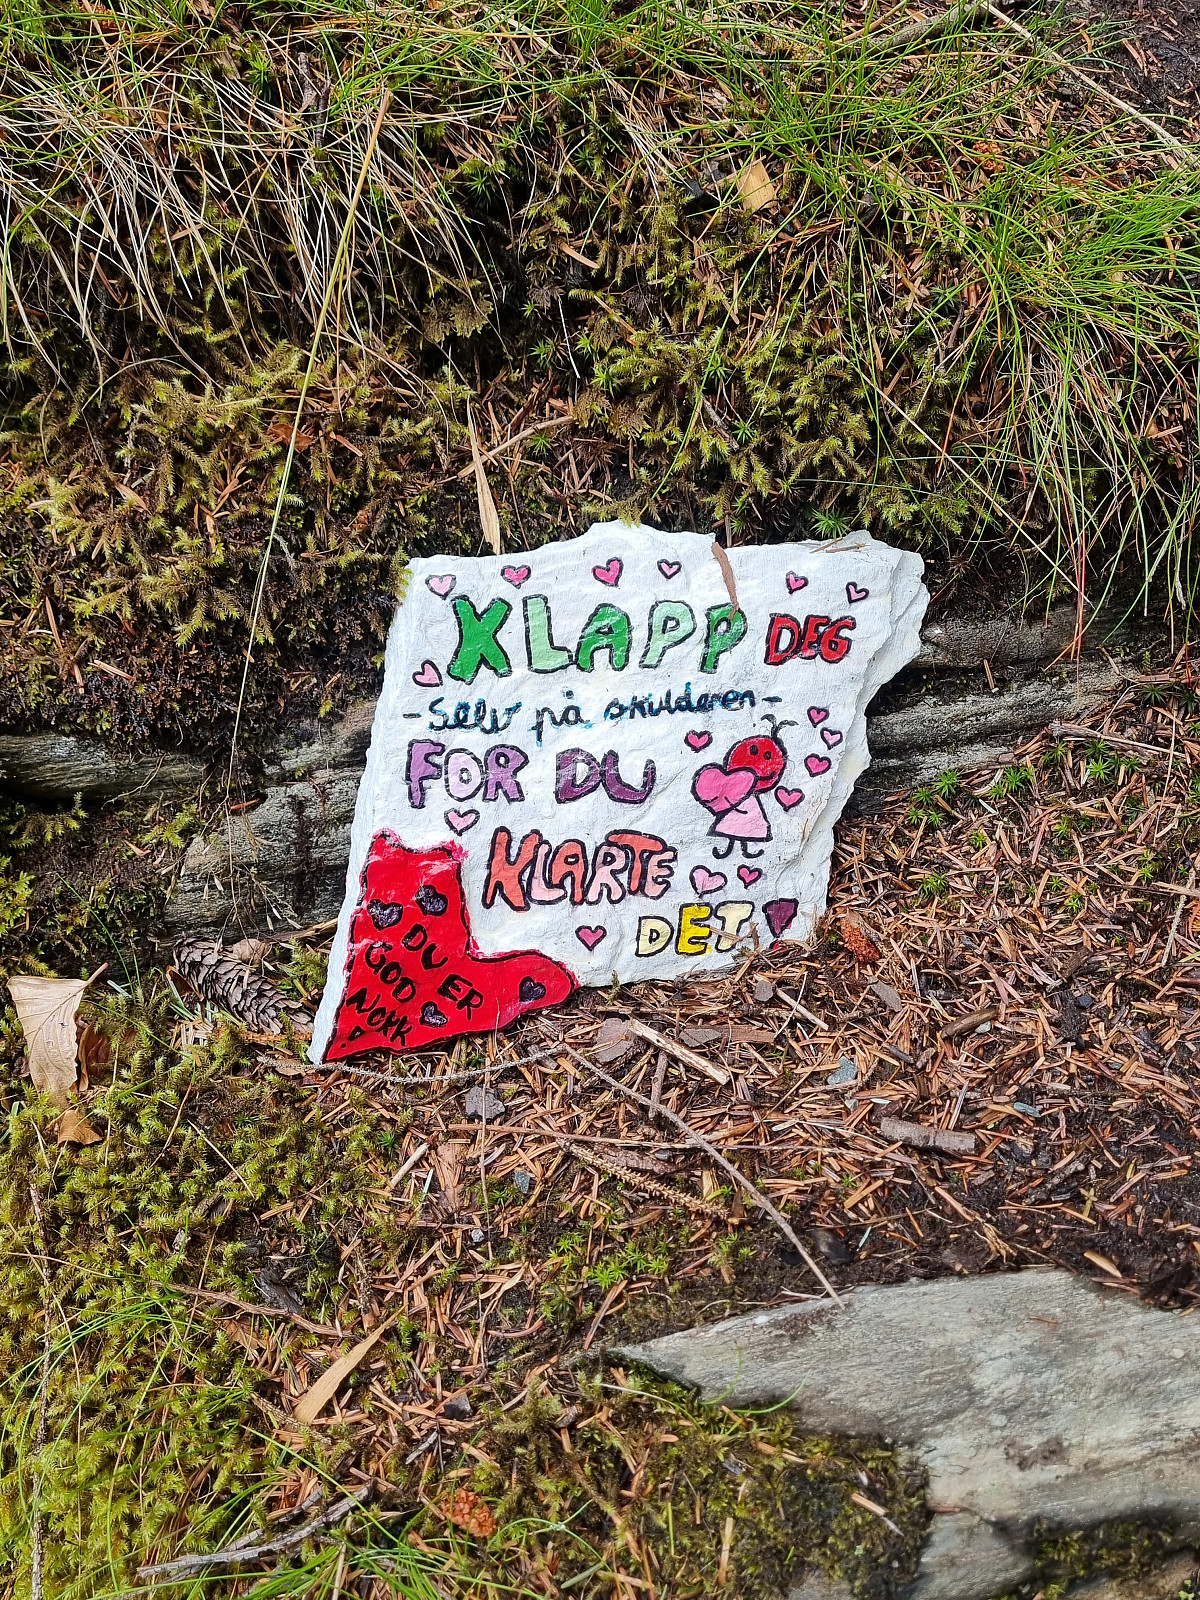 KLAPP DEG
-Selv på skulderen-
FOR DU
KLARTE
DET
DU ER
GOD
NOKK